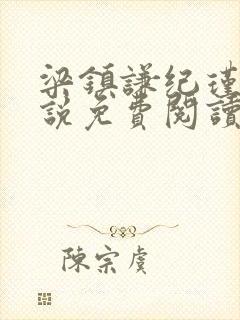 梁鎮謙纪瑾
說免費閱讀
陳宗虞